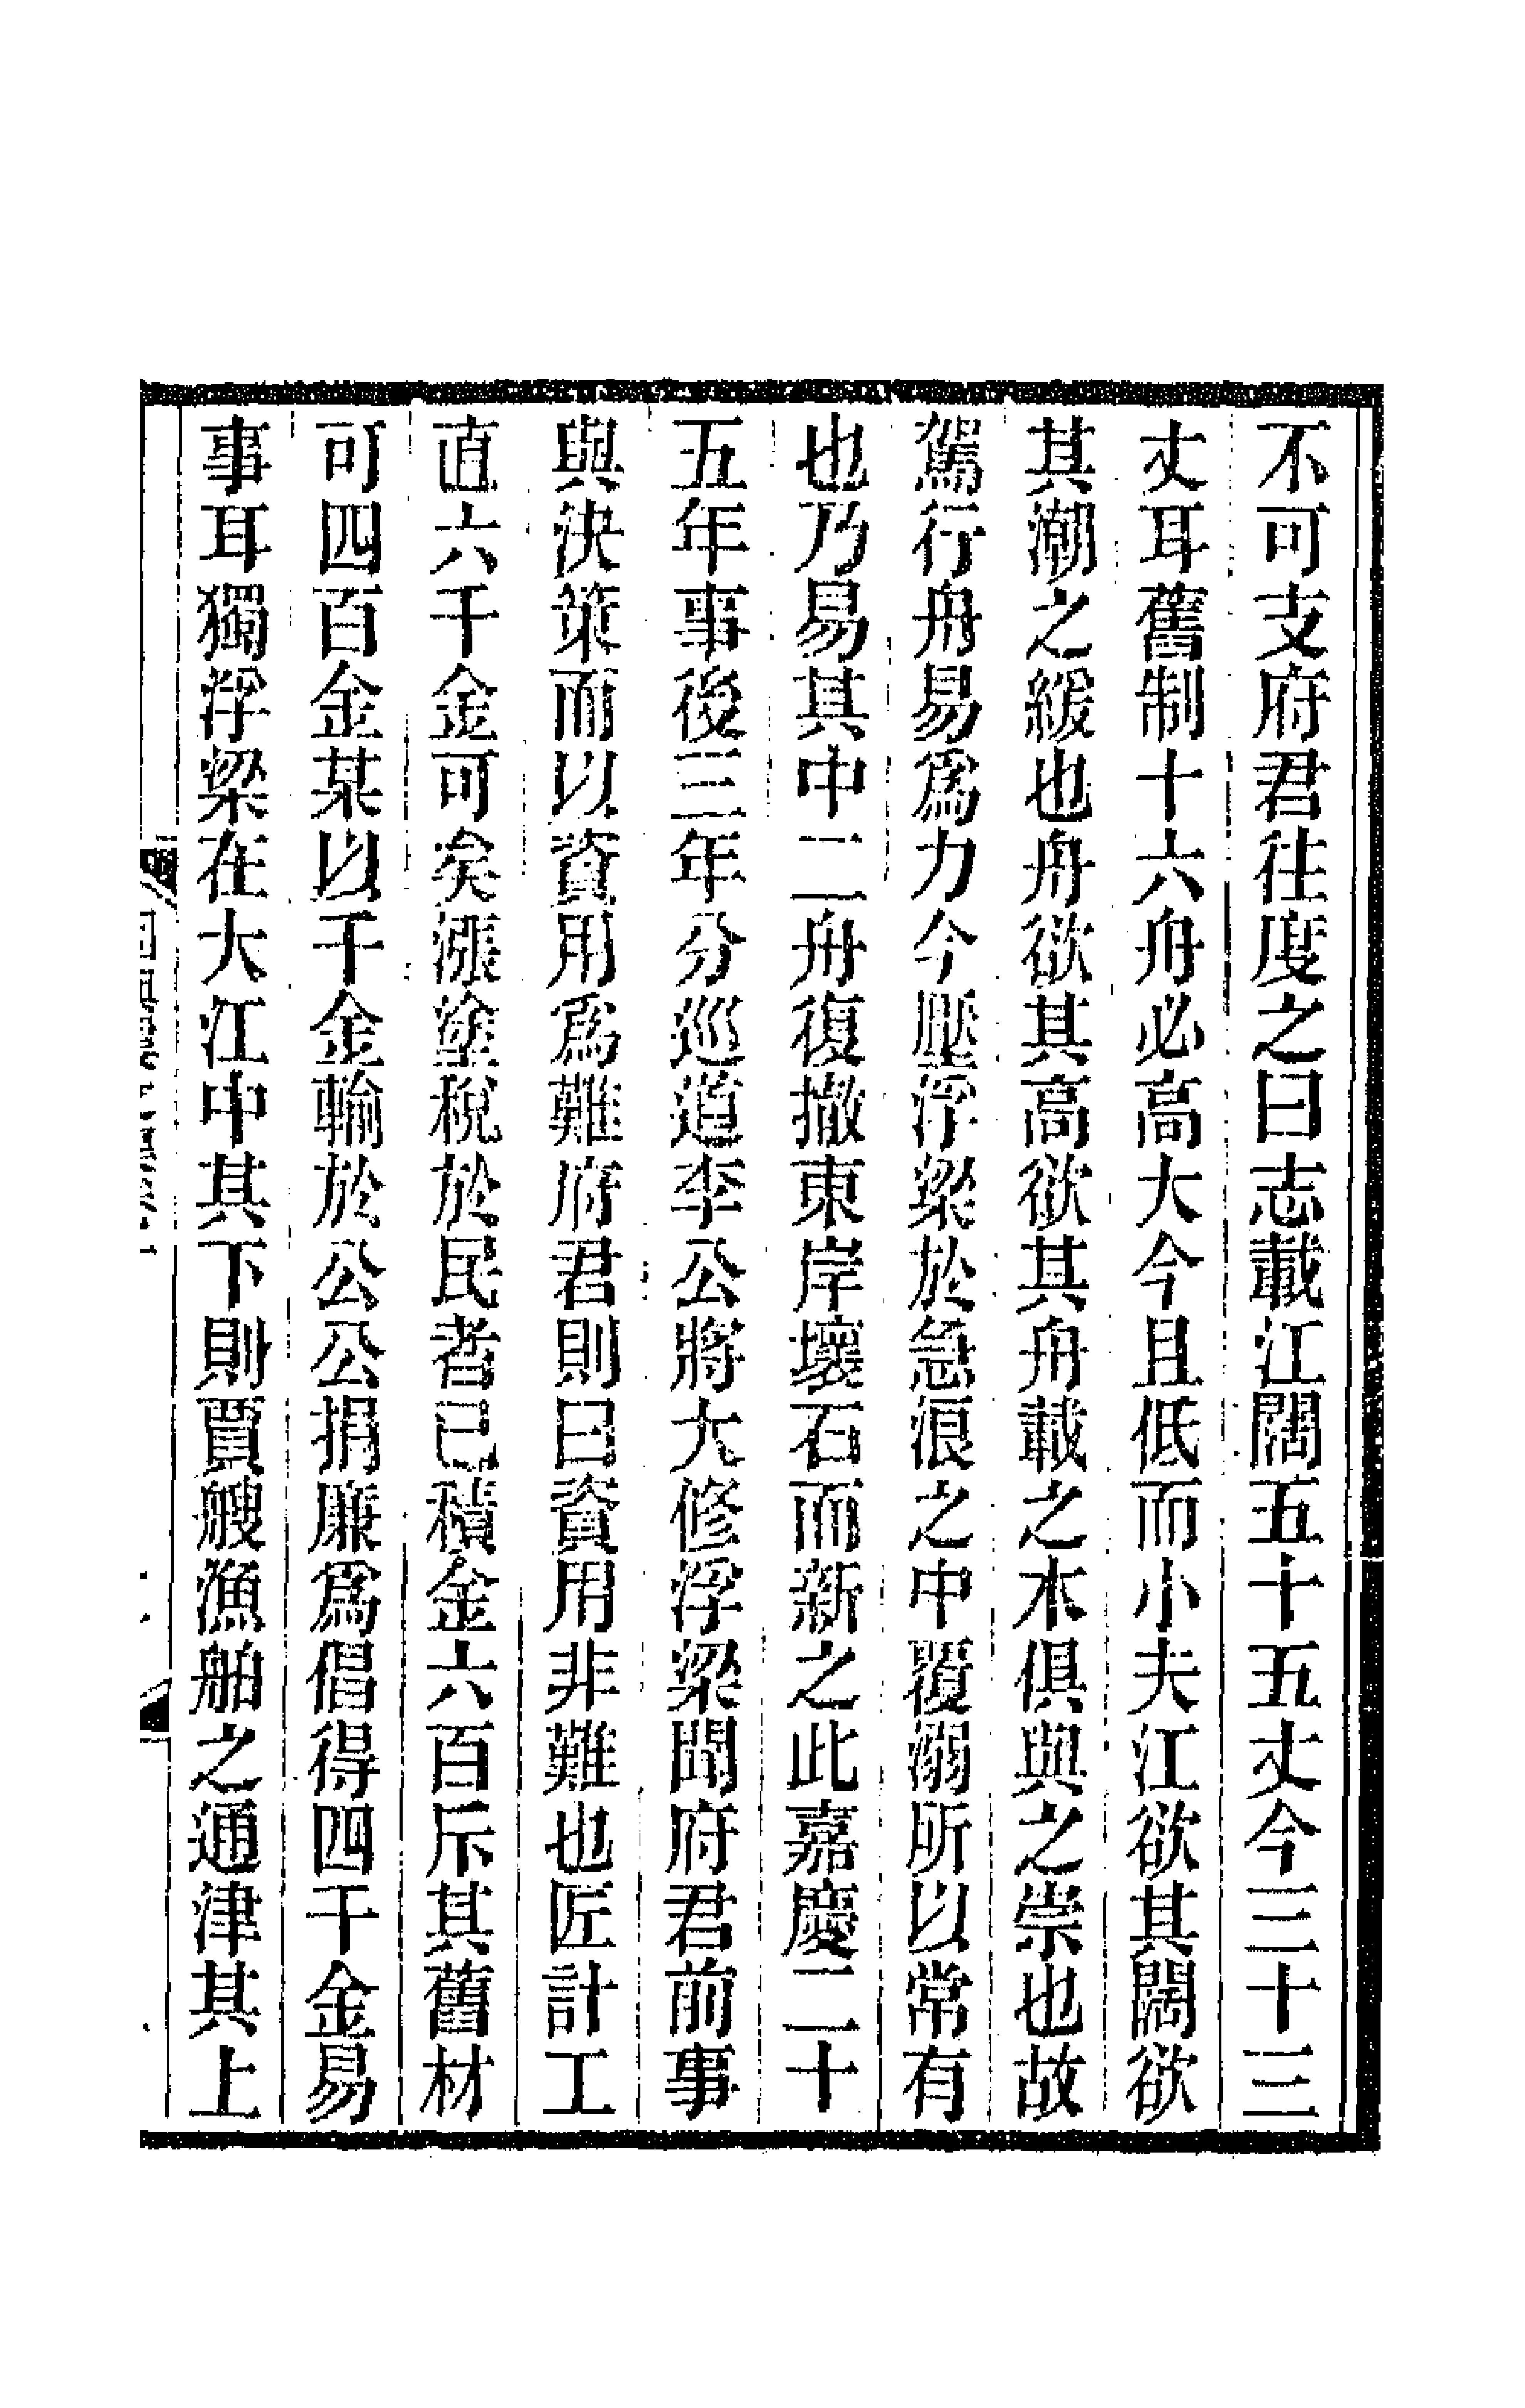 不可支府君往度之曰志載江闊五十五丈今三十三
丈耳舊制十六舟必高大今且低而小夫江欲其闊欲
其潮之緩也舟欲其高欲其舟載之木俱與之崇也故
駕行舟易爲力今壓浮梁於急浪之中覆溺所以常有
也乃易其中二舟復撤東岸壞石而新之此嘉慶二十
五年事後三年分巡道李公將大修浮梁聞府君前事
與決策而以資用爲難府君則曰資用非難也匠計工
直六千金可矣漲塗稅於民者已積金六百斥其舊材
可四百金某以千金輸於公公捐廉爲倡得四千金易
事耳獨浮梁在大江中其下則賈艘漁舶之通津其上